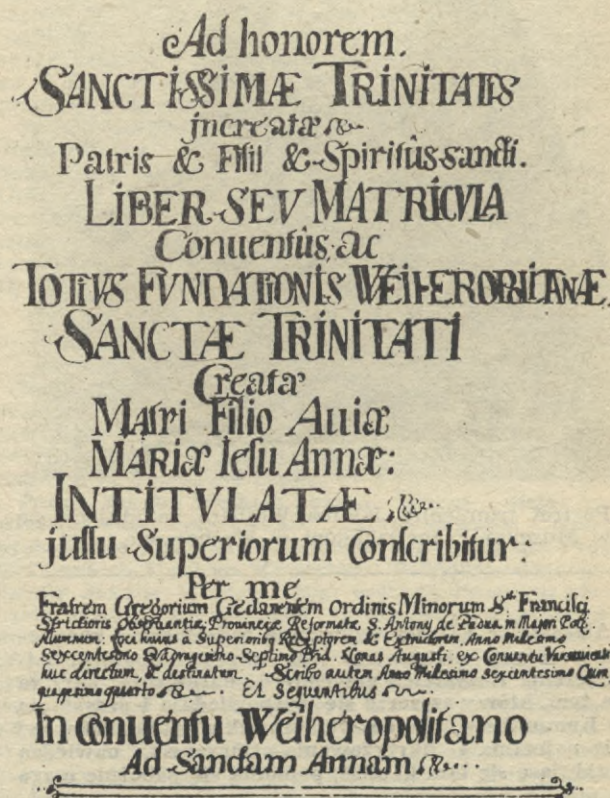 Ad honorem.
SANCTISSIMÆ TRINITATIS
increatæ
Patris & Filii & Spiritûs sancti.
LIBER SEV MATRICVLA
Conuentûs ac
TOTIVS FVNDATIONIS WEIHEROPOLITANÆ
SANCTÆ TRINITATI
Creatæ
Matri Filio Auiæ
MARIÆ Iesu Annæ:
INTITVLATÆ
jussu Superiorum Conscribitur:
Per me
Fratrem Gregorium Gedanensem Ordinis Minorum S.ti Francisci
Strictioris Observantiæ, Provinciæ Reformatæ, S. Antony de Padua in Majori Pol:
Alumnum: loci huius à Superioribq Receptorem & Extructorem, Anno Millesimo
Sexcentesimo Quadragesimo Septimo Prid. Nonas Augusti, ex Conventu
huc directum, & destinatum. Scribo autem Anno Millesimo sexcentesimo Quin
quagesimo quarto Et Sequentibus
In Conuentu Weiheropolitano
Ad Sanctam Annam